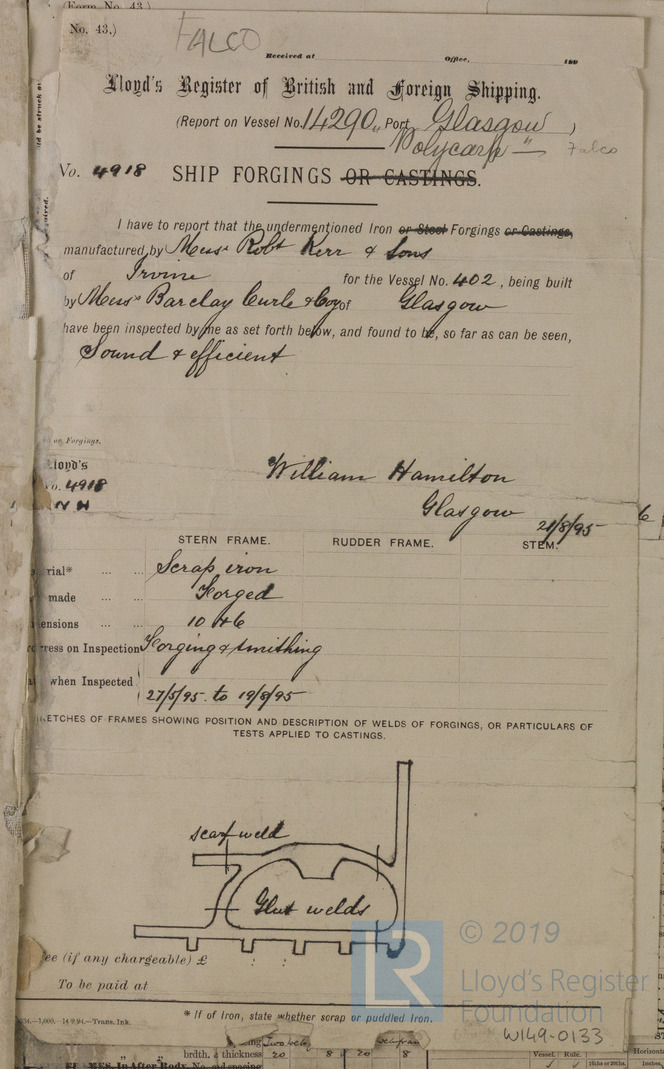 (Form No. 43.)
No. 43.)
FALCO
Received at Office, 189
Lloyd's Register of British and Foreign Shipping.
(Report on Vessel No. 14290 Port Glasgow )
"Polycarp" Falco
No. 4918 SHIP FORGINGS OR CASTINGS.
I have to report that the undermentioned Iron or Steel Forgings or Castings,
manufactured by Messrs Robt Kerr & Sons
of Irvine for the Vessel No. 402, being built
by Messrs Barclay Curle & Coy of Glasgow
have been inspected by me as set forth below, and found to be, so far as can be seen,
Sound & efficient
on Forgings.
Lloyd's
No. 4918
W H
William Hamilton
Glasgow
21/8/95
STERN FRAME. RUDDER FRAME. STEM.
rial* ... ... Scrap iron
made ... ... Forged
ensions ... ... 10 x 6
ress on Inspection Forging & smithing
when Inspected 27/5/95. to 19/8/95
ETCHES OF FRAMES SHOWING POSITION AND DESCRIPTION OF WELDS OF FORGINGS, OR PARTICULARS OF
TESTS APPLIED TO CASTINGS.
scarf weld
Glut welds
ee (if any chargeable) £ : :
To be paid at
© 2019
LR
Lloyd's Register
Foundation
W149-0133
* If of Iron, state whether scrap or puddled Iron.
—1,000.—14.9.94.—Trans. Ink.
brdth. & thickness 20 8 20 8
Vessel. Rule.
Horizonta
FRAMES. In After Body. No. and spacing